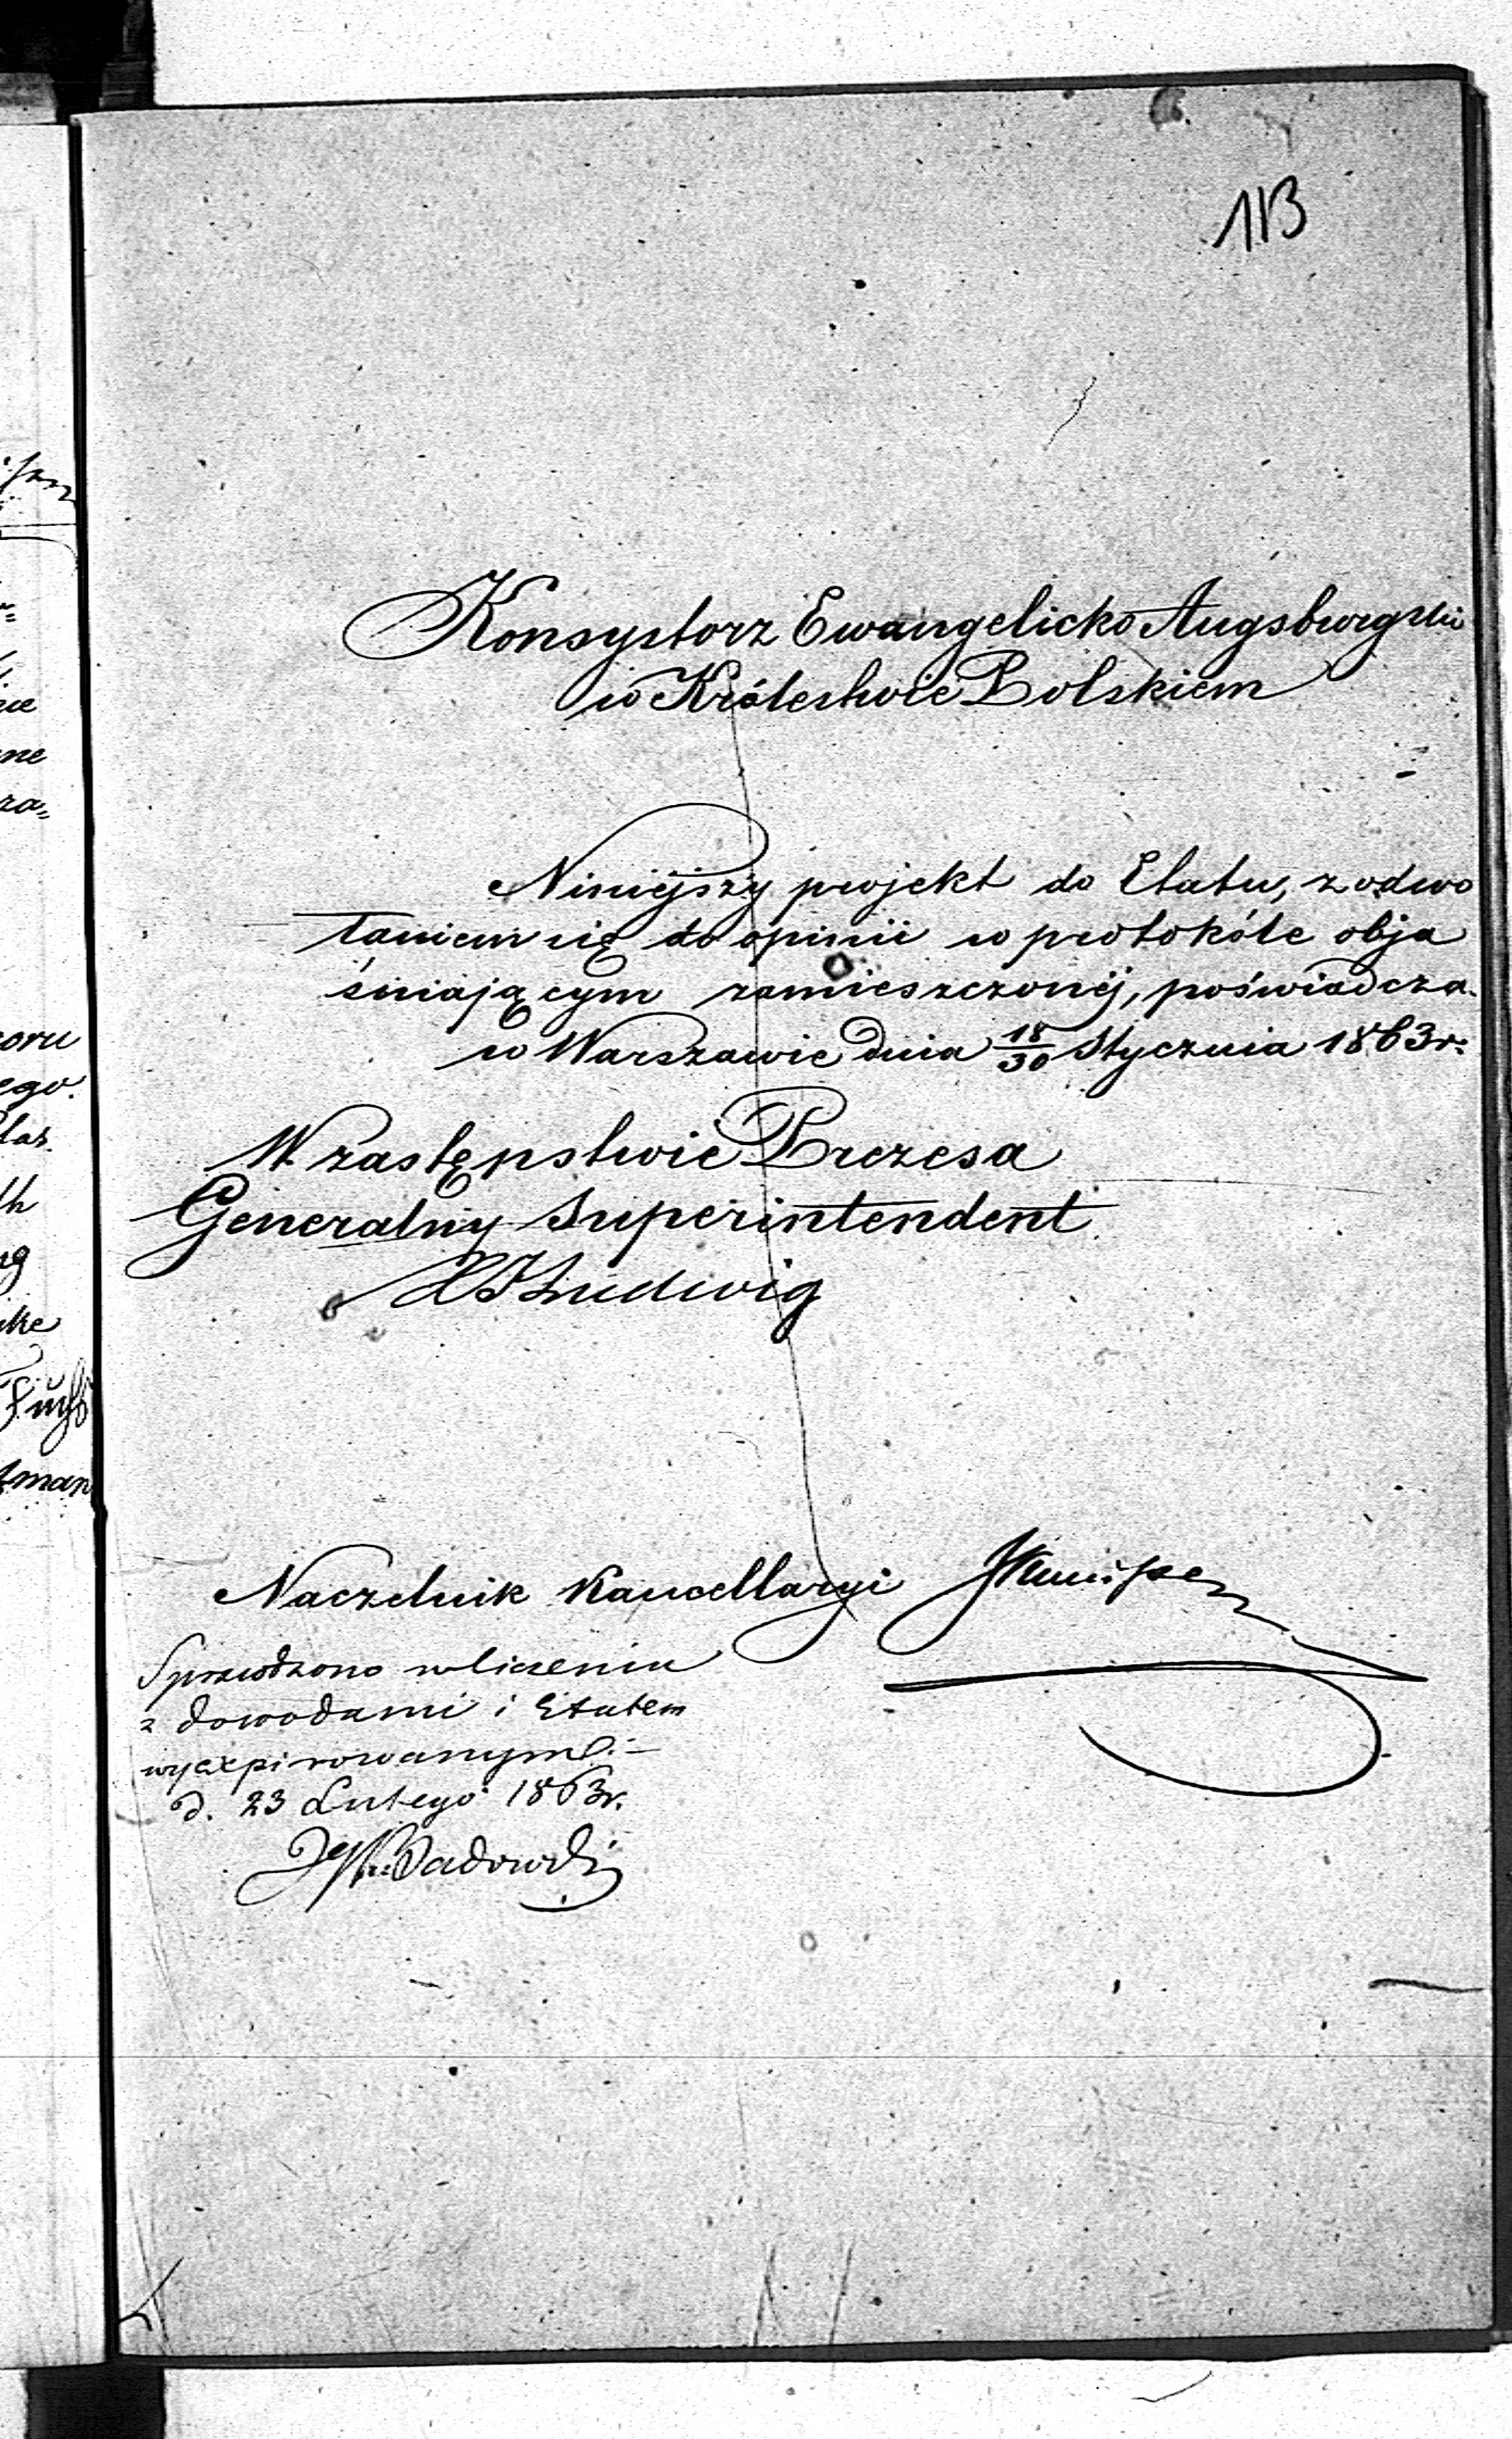 113
Konsystorz Ewangelicko Augsburgski
w Królestwie Polskiem
Niniejszy projekt do Etatu, z odwo
łaniem się do opinii w protokóle obja
śniającym zamieszczonéj, poświadcza.
w Warszawie dnia 18/30 Stycznia 1863 r.
W zastępstwie Prezesa
Generalny Superintendent
Ludwig
Naczelnik Kancellaryi
Sprawdzono w liczeniu
z dowodami i Etatem
wyexpirowanym.
d. 23 Lutego 1863 r.
Sadowski